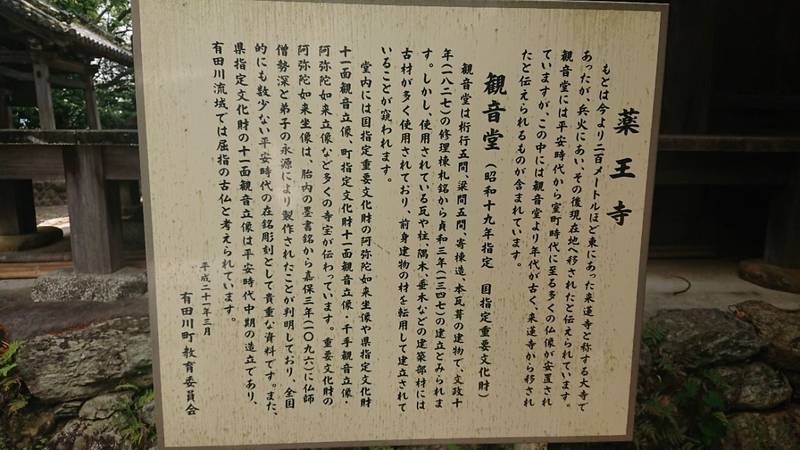 薬王寺
もとは今より二百メートルほど東にあった来蓮寺と称する大寺で
あったが、兵火にあい、その後現在地へ移されたと伝えられています。
観音堂には平安時代から室町時代に至る多くの仏像が安置され
ていますが、この中には観音堂より年代が古く、来蓮寺から移され
たと伝えられるものが含まれています。
観音堂（昭和十九年指定 国指定重要文化財）
観音堂は桁行五間、梁間五間、寄棟造、本瓦葺の建物で、文政十
年（一八二七）の修理棟札銘から貞和三年（一三四七）の建立とみられま
す。しかし、使用されている瓦や柱、隅木、垂木などの建築部材には
古材が多く使用されており、前身建物の材を転用して建立されて
いることが窺われます。
堂内には国指定重要文化財の阿弥陀如来坐像や県指定文化財
十一面観音立像、町指定文化財十一面観音立像・千手観音立像・
阿弥陀如来立像など多くの寺宝が伝わっています。重要文化財の
阿弥陀如来坐像は、胎内の墨書銘から嘉保三年（一〇九六）に仏師
僧勢深と弟子の永源により製作されたことが判明しており、全国
的にも数少ない平安時代の在銘彫刻として貴重な資料です。また、
県指定文化財の十一面観音立像は平安時代中期の造立であり、
有田川流域では屈指の古仏と考えられています。
平成二十一年三月
有田川町教育委員会